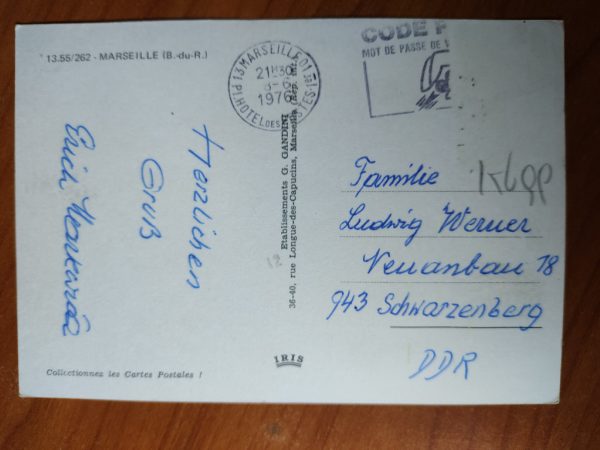 13.55/262 - MARSEILLE (B.-du-R.)
Herzlichen
Gruß
Erich
Collectionnez les Cartes Postales !
Etablissements G. GANDINI
36-40, rue Longue-des-Capucins, Marseille
IRIS
13 MARSEILLE 01
21H30
1976
HOTEL DES
CODE
MOT DE PASSE DE
Familie
Ludwig Werner
Neuanbau 18
943 Schwarzenberg
DDR